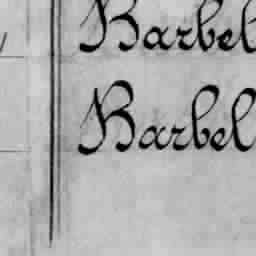 Barbel
Barbel